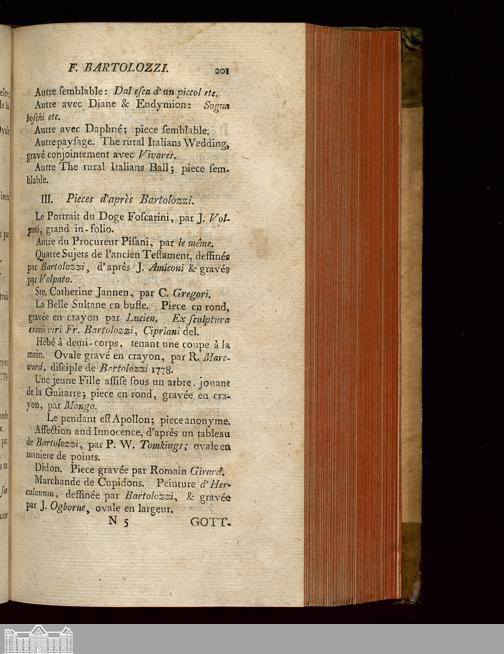 F. BARTOLOZZI. 201
Autre ſemblable: Dal eſca d'un piccol etc.
Autre avec Diane & Endymion: Sogna
boſchi etc.
Autre avec Daphné; piece ſemblable.
Autre payſage. The rural Italians Wedding,
gravé conjointement avec Vivares.
Autre The rural Italians Ball; piece ſem-
blable.
III. Pieces d'après Bartolozzi.
Le Portrait du Doge Foſcarini, par J. Vol-
pati, grand in-folio.
Autre du Procureur Piſani, par le même.
Quatre Sujets de l'ancien Teſtament, deſſinés
par Bartolozzi, d'après J. Amiconi & gravés
par Volpato.
Ste. Catherine Jannen, par C. Gregori.
La Belle Sultane en buſte. Piece en rond,
gravée en crayon par Lucien. Ex ſculptura
eximii viri Fr. Bartolozzi, Cipriani del.
Hébé à demi-corps, tenant une coupe à la
main. Ovale gravé en crayon, par R. Marc-
ward, diſciple de Bartolozzi 1778.
Une jeune Fille aſſiſe ſous un arbre, jouant
de la Guitarre; piece en rond, gravée en cra-
yon, par Mango.
Le pendant eſt Apollon; piece anonyme.
Affection and Innocence, d'après un tableau
de Bartolozzi, par P. W. Tomkings; ovale en
maniere de points.
Didon. Piece gravée par Romain Girard.
Marchande de Cupidons. Peinture d'Her-
culanum, deſſinée par Bartolozzi, & gravée
par J. Ogborne, ovale en largeur.
N 5 GOTT-